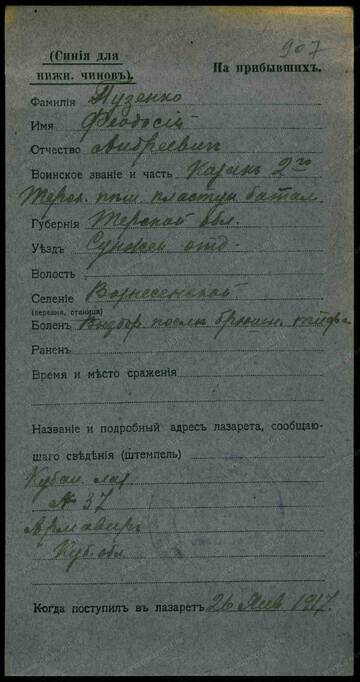 907
(Синія для
нижн. чиновъ).
На прибывшихъ.
Фамилія Лузенко
Имя Феодосій
Отчество Андреевич
Воинское званіе и часть Казакъ 2го
Терск. плас. пластун батал.
Губернія Терской обл.
Уѣздъ Сунжен отд.
Волость
Селеніе Вознесенской
(деревня, станица)
Боленъ Выздор после брюшн. тифа
Раненъ
Время и мѣсто сраженія
Названіе и подробный адресъ лазарета, сообщаю-
щаго свѣдѣнія (штемпель)
Кубан. лаз
№ 37
Армавиръ
Куб. обл.
Когда поступилъ въ лазаретъ 26 Янв 1917.